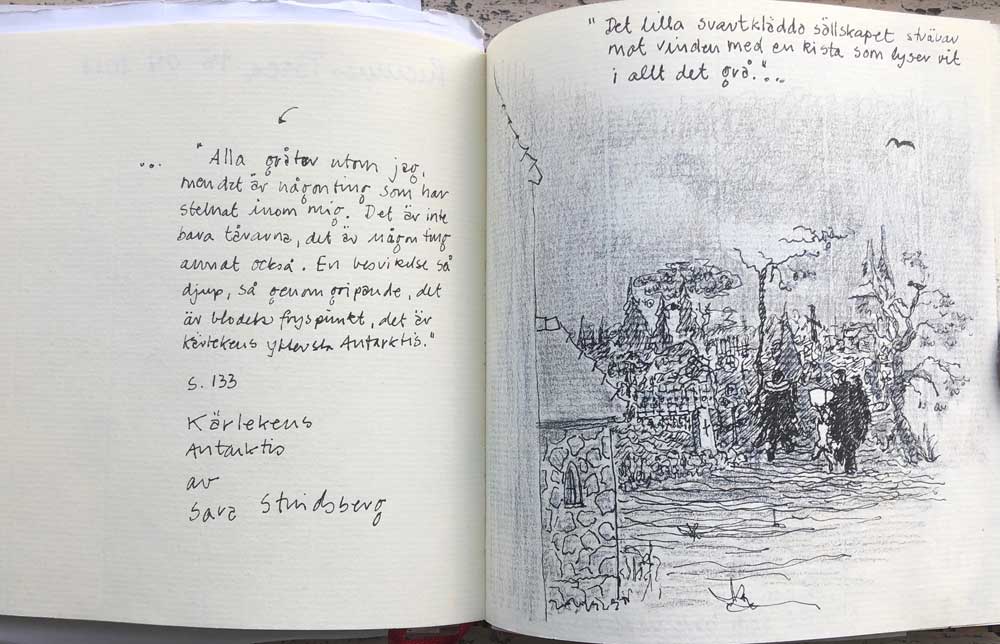 ... "Alla gråter utom jag,
men det är någonting som har
stelnat inom mig. Det är inte
bara tårarna, det är någonting
annat också. En besvikelse så
djup, så genomgripande, det
är blodets fryspunkt, det är
kärlekens yttersta Antarktis."
s. 133
Kärlekens
Antarktis
av
Sara Stridsberg
"Det lilla svartklädda sällskapet strävar
mot vinden med en kista som lyser vit
i allt det grå."...